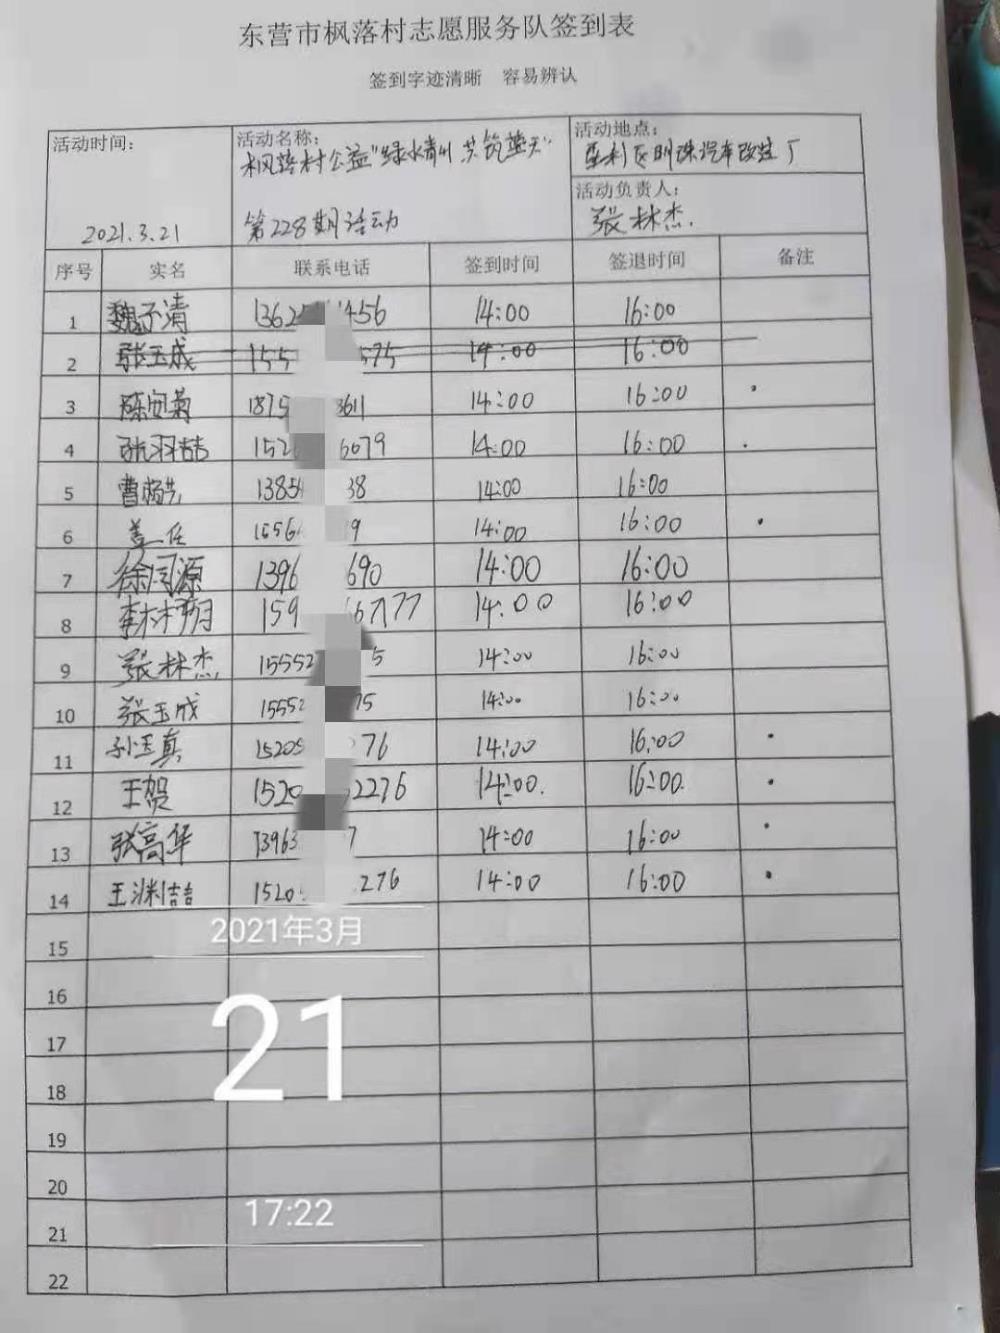 东营市枫落村志愿服务队签到表
签到字迹清晰 容易辨认
活动时间：
2021.3.21
活动名称：
枫落村公益"绿水青山 共筑蓝天"
第228期活动
活动地点：
垦利区明珠汽车改装厂
活动负责人：
张林杰.
序号 实名 联系电话 签到时间 签退时间 备注
1 魏子清 1362 456 14:00 16:00
2 张玉成 155 575 14:00 16:00
3 陈安菊 1875 3611 14:00 16:00 .
4 152 6079 14:00 16:00 .
5 曹 1385 38 14:00 16:00
6 盖一任 1556 9 14:00 16:00 .
7 徐同源 1396 690 14:00 16:00
8 159 67177 14:00 16:00
9 张林杰 15552 5 14:00 16:00
10 张玉成 15552 75 14:00 16:00
11 孙玉真 15205 76 14:00 16:00 .
12 王贺 1520 2276 14:00. 16:00. .
13 张高华 13963 7 14:00 16:00 .
14 王渊喆 1520 276 14:00 16:00 .
15
2021年3月
16
21
17
18
19
20
17:22
21
22